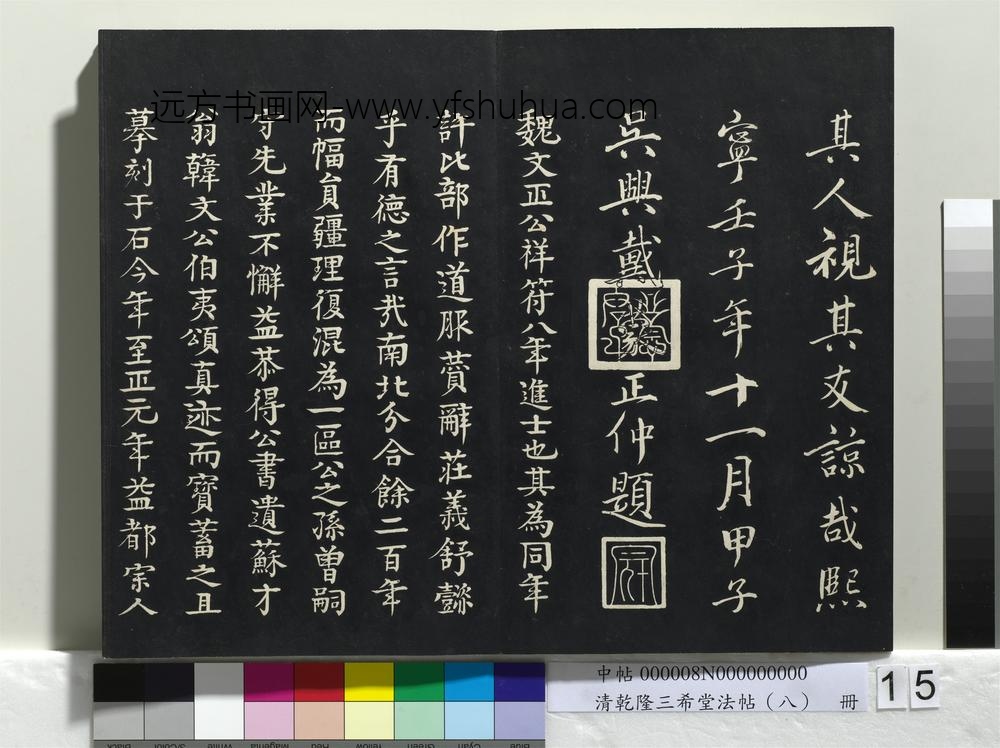 其人視其友諒哉熙
寧壬子年十一月甲子
吳興戴
正仲題
魏文正公祥符八年進士也其為同年
許比部作道服贊辭莊義舒懿
乎有德之言哉南北分合餘二百年
而幅員疆理復混為一區公之孫曾嗣
守先業不懈益恭得公書遺蘇才
翁韓文公伯夷頌真迹而寶蓄之且
摹刻于石今年至正元年益都宗人
远方书画网-www.yfshuhua.com
中帖 000008N000000000
清乾隆三希堂法帖（八） 冊
15
Black
3/Color
White
Magenta
Red
Yellow
Green
Cyan
Blue